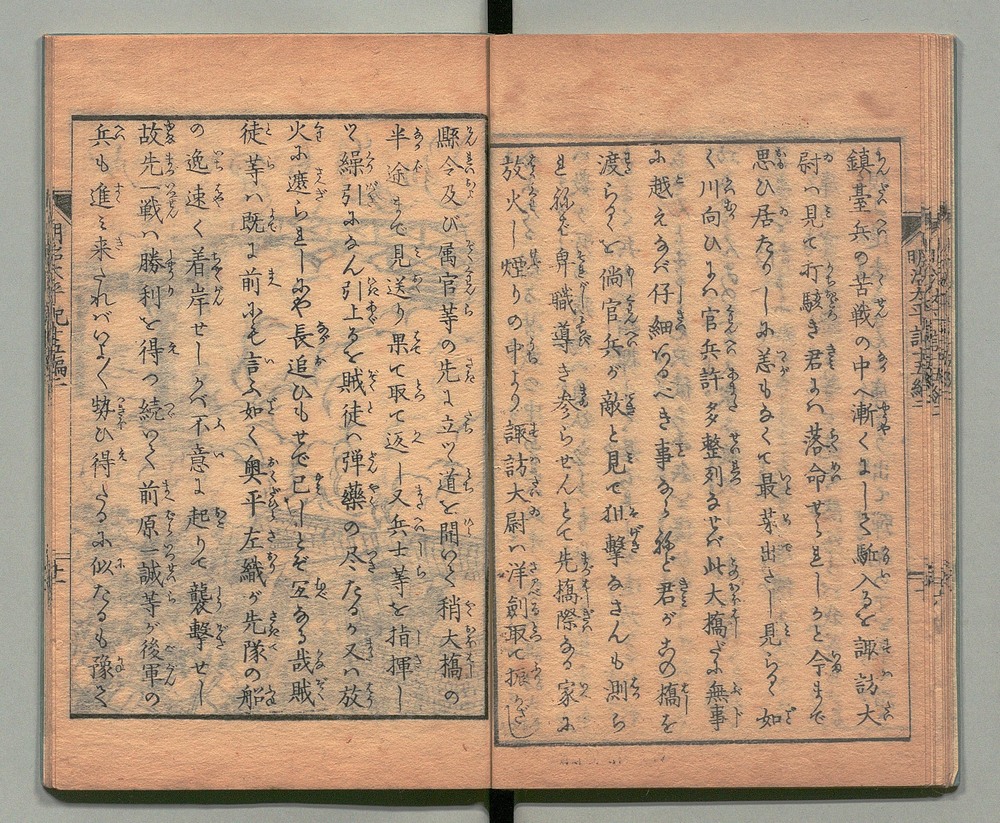 鎮臺兵の苦戦の中へ漸くにして駈入るを諏訪大
尉ハ見て打駭き君にハ落命せられしかと今まで
思ひ居たりしに恙もなくて最芽出たし見らるゝ如
く川向ひにハ官兵許多整列なせバ此大橋だに無事
に越えなバ仔細なるべき事ならねど君がこの橋を
渡らるゝを倘官兵が敵と見て狙撃なさんも測ら
れねバ卑職導き参らせんとて先橋際なる家に
放火し煙りの中より諏訪大尉ハ洋劍取て振かざし
縣令及び属官等の先に立ツ道を開いて稍大橋の
半途まで見送り果て取て返し又兵士等を指揮し
ツ繰引になん引上るを賊徒ハ弾藥の尽たるか又ハ放
火に遮られしにや長追ひもせで已しとぞ 哉賊
徒等ハ既に前にも言ふ如く奥平左織が先隊の船
の逸速く着岸せしかバ不意に起りて襲撃せし
故先一戦ハ勝利を得つ続いて前原一誠等が後軍の
兵も進み来たれバいよゝ 勢ひ得たるに似たるも豫て
明治太平記十五編二
明治太平記十五編二
十一